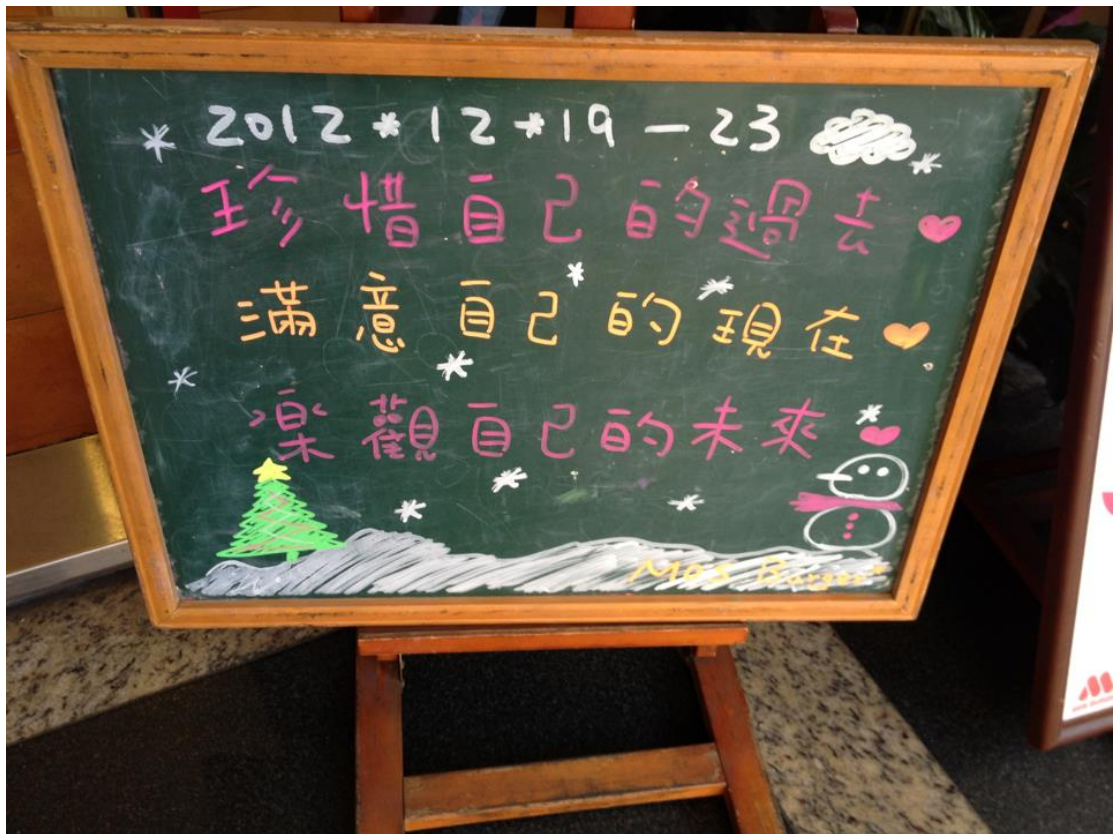 2012*12*19-23
珍惜自己的過去
滿意自己的現在
樂觀自己的未來
MOS Burger